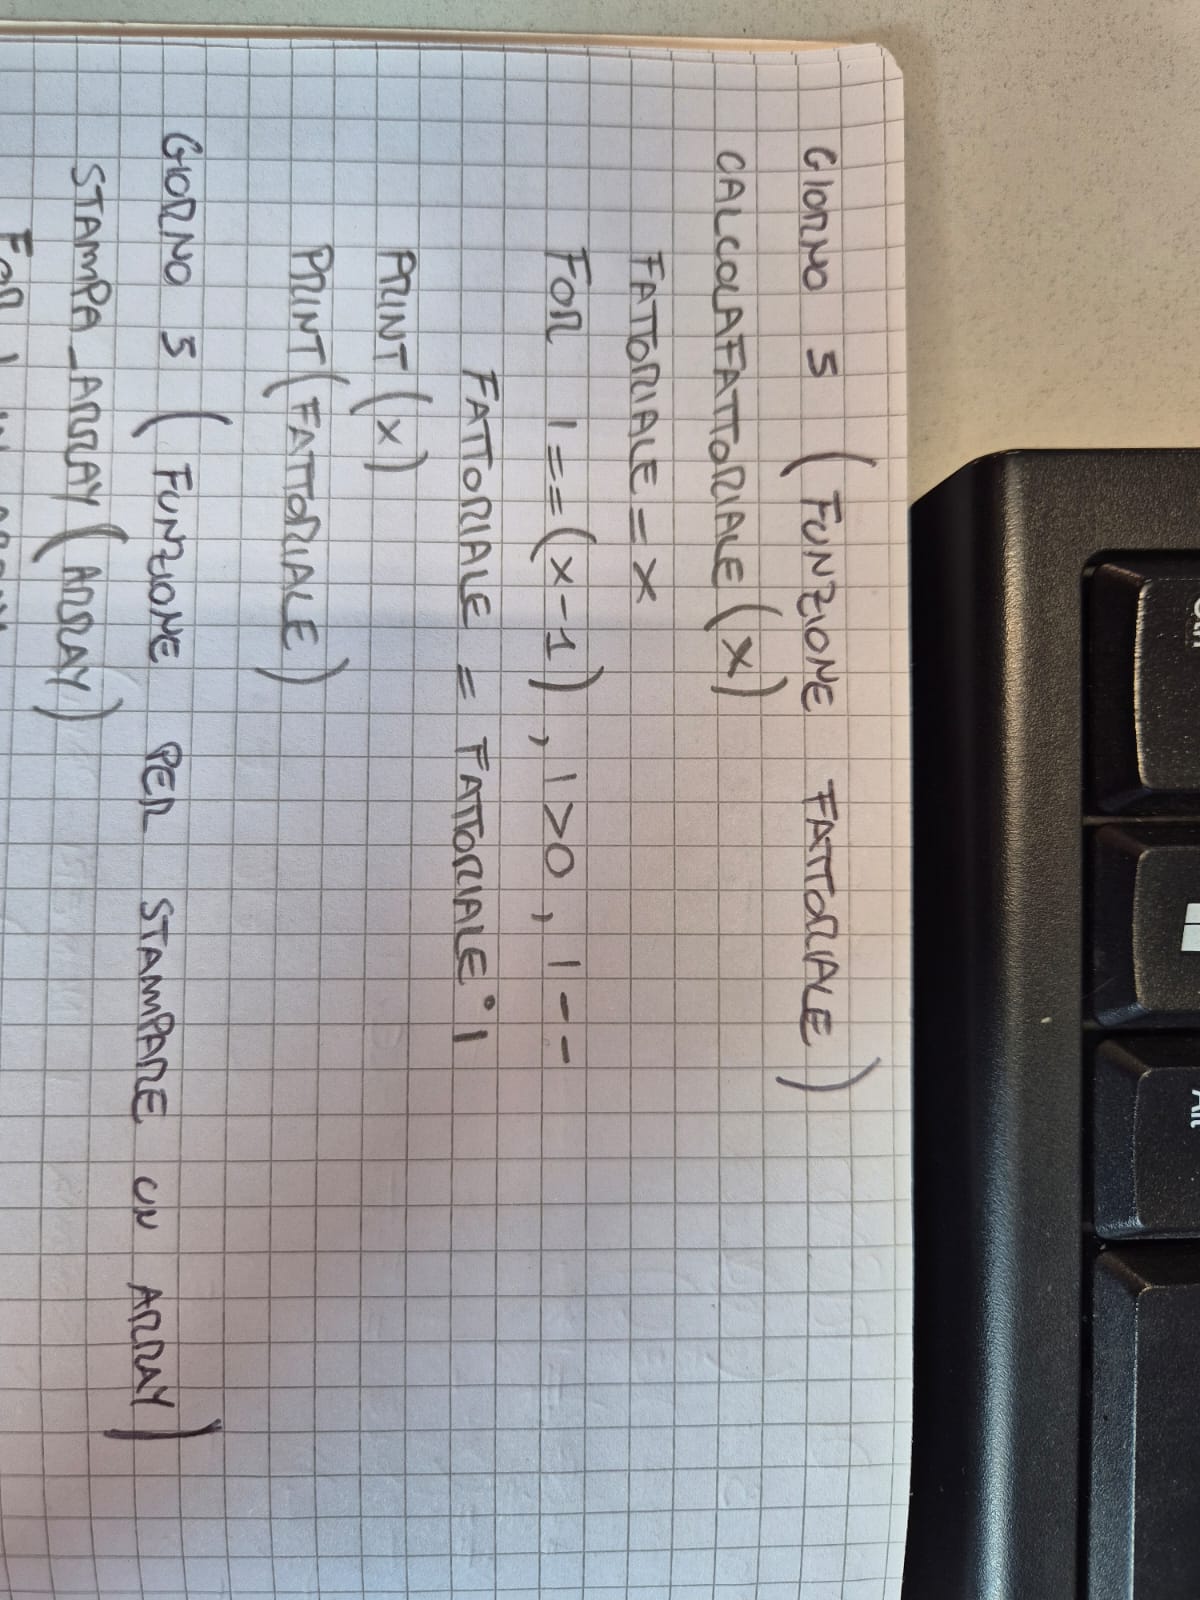 GIORNO 5 (FUNZIONE FATTORIALE)
CALCOLAFATTORIALE(X)
FATTORIALE = X
FOR I == (X-1), I>0, I--
FATTORIALE = FATTORIALE • I
PRINT(X)
PRINT(FATTORIALE)
GIORNO 5 (FUNZIONE PER STAMPARE UN ARRAY)
STAMPA_ARRAY(ARRAY)
FOR I IN ARRAY
Alt